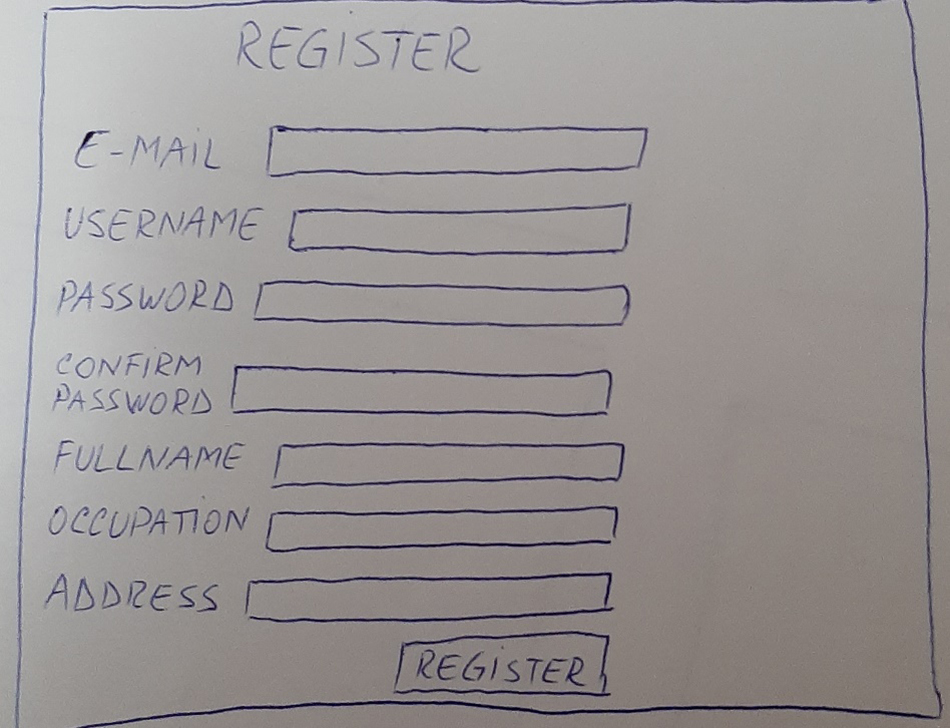 REGISTER
E-MAIL
USERNAME
PASSWORD
CONFIRM
PASSWORD
FULLNAME
OCCUPATION
ADDRESS
REGISTER